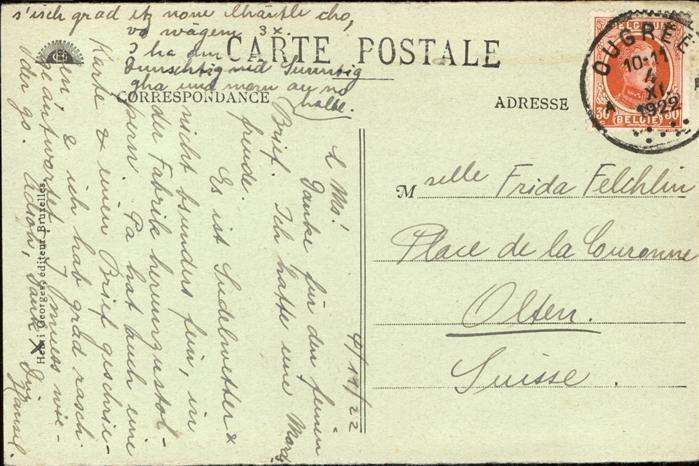 s'isch grad etz none
cho,
wägem 3x.
I ha dm
Dunschtig
CARTE POSTALE
CORRESPONDANCE
ADRESSE
OUGRÉE
10-11
4
XI
1922
30 BELGIË 30
L Ms!
Danke für den feinen
Brief. Ich hatte eine Mords
freude.
Es ist Sudelwetter &
nicht bsunders fein, in
der Fabrik herumzustol-
pern. Pa hat auch eine
Karte & einen Brief geschrie-
ben, & ich hab grad rasch
geantwortet. I muess wie-
der go. Adioh,
4/11/22
Mselle Frida Felchlin
Place de la Couronne
Olten.
Suisse.
Henri Georges, éditeur, Bruxelles